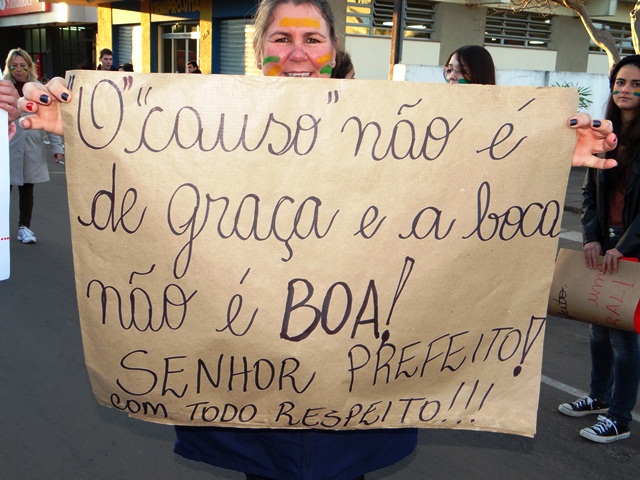 "O" "causo" não é
de graça e a boca
não é BOA!
SENHOR PREFEITO!
com TODO RESPEITO!!!